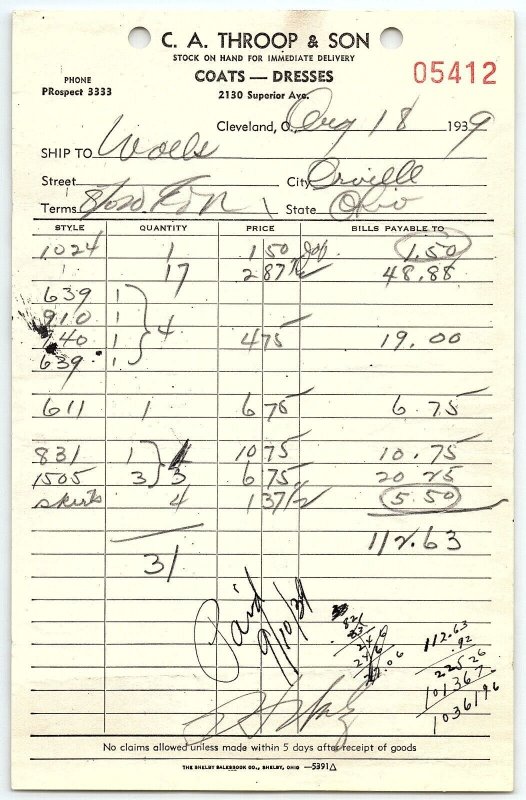 C. A. THROOP & SON
STOCK ON HAND FOR IMMEDIATE DELIVERY
COATS — DRESSES
05412
PHONE
PRospect 3333
2130 Superior Ave.
Cleveland, O. Aug 18 1939
SHIP TO
Street City Orville
Terms 8/10 State Ohio
STYLE QUANTITY PRICE BILLS PAYABLE TO
1024 1 1 50 1.50
17 2 87 1/2 48.88
639 1
910 1
140 1 4 4 75 19.00
639 1
611 1 6 75 6.75
831 1 10 75 10.75
1505 3 3 6 75 20 25
skirts 4 1 37 1/2 5.50
31 112.63
Paid
9/10/39
821
83
246
246
22.06
112.63
.92
225 26
101367
1036196
No claims allowed unless made within 5 days after receipt of goods
THE SHELBY SALESBOOK CO., SHELBY, OHIO —5391△